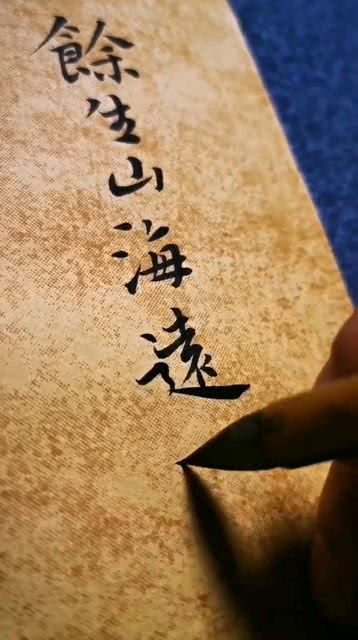 餘生山海遠